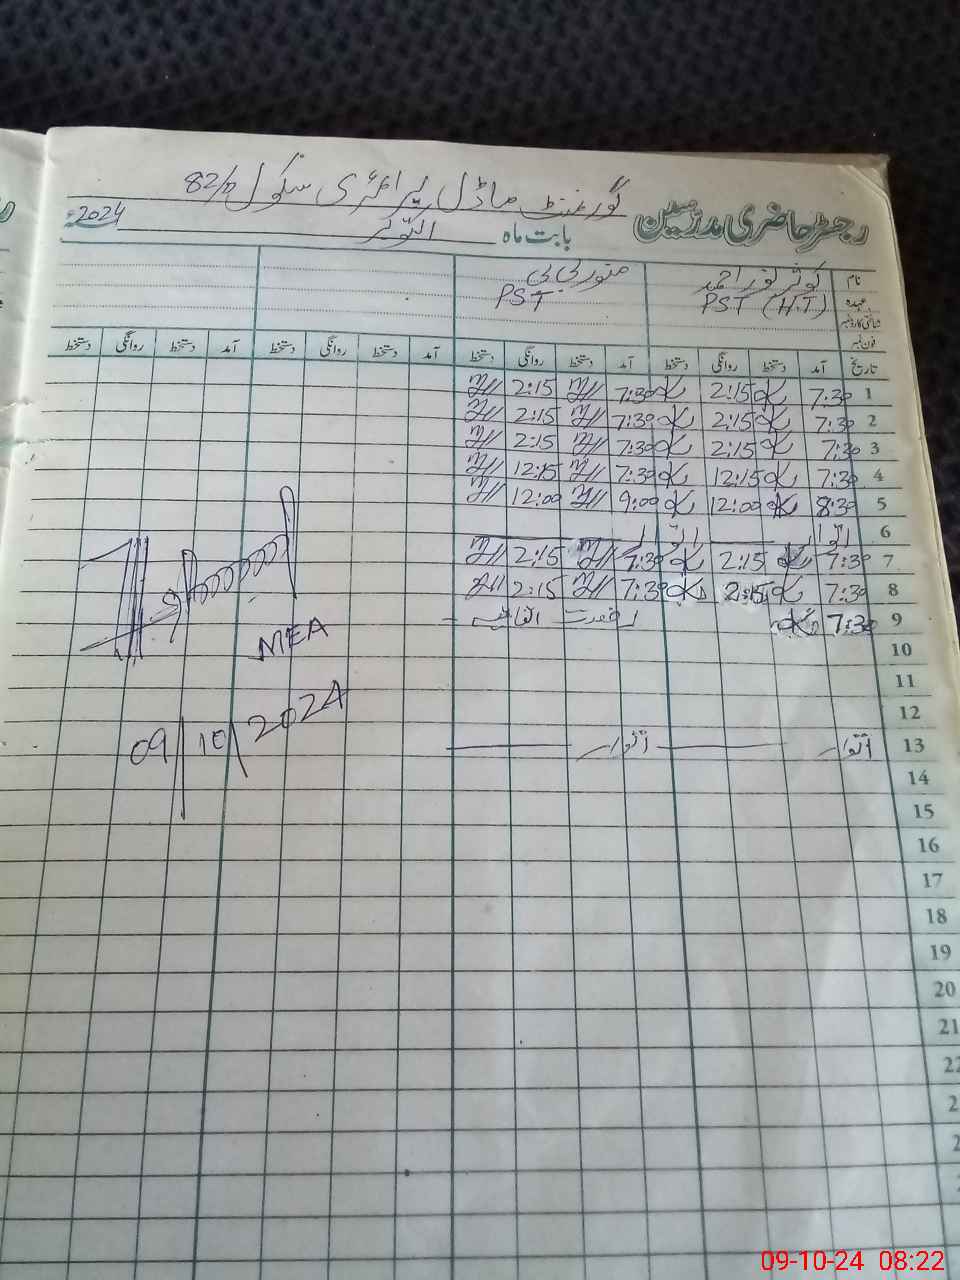 گورنمنٹ ماڈل پرائمری سکول 82/D
رجسٹر حاضری مدرسین بابت ماہ اکتوبر 2024ء
نام کوثر نور احمد منور بی بی
عہدہ PST (H.T) PST
شناختی کارڈ نمبر
فون نمبر
تاریخ آمد دستخط روانگی دستخط آمد دستخط روانگی دستخط آمد دستخط روانگی دستخط آمد دستخط روانگی دستخط
1 7:30 2:15 7:30 2:15
2 7:30 2:15 7:30 2:15
3 7:30 2:15 7:30 2:15
4 7:30 12:15 7:30 12:15
5 8:30 12:00 9:00 12:00
6 اتوار اتوار
7 7:30 2:15 7:30 2:15
8 7:30 2:15 7:30 2:15
9 7:30 رخصت اتفاقیہ
MEA
10
11
12
09/10/2024
13 اتوار اتوار
14
15
16
17
18
19
20
21
22
2
2
09-10-24 08:22